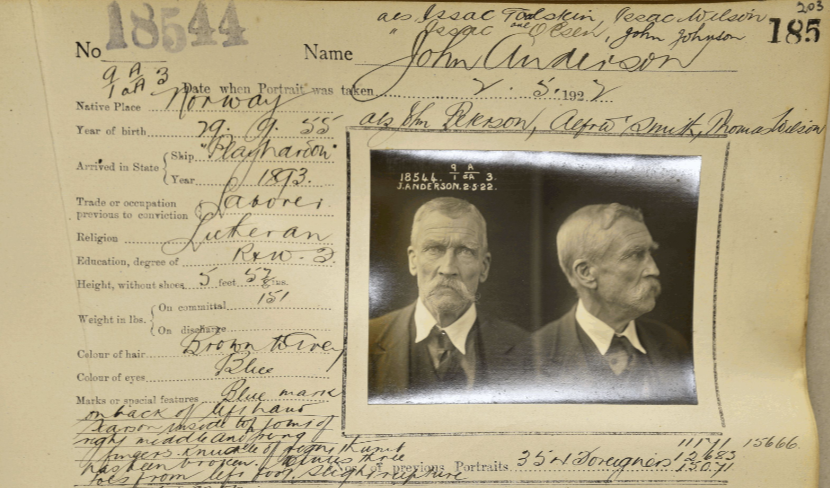 203
No 18544 Name John Anderson 185
als Issac Todskin, Issac Wilson
" Issac Olsen, John Johnson
9 A 3
1 aA
Date when Portrait was taken 2. 5. 1922
als John Peterson, Alfred Smith, Thomas Wilson
Native Place Norway
Year of birth 29. 9. 55
Arrived in State { Ship
Year 1893.
Trade or occupation previous to conviction Laborer
Religion Lutheran
Education, degree of R & W.
Height, without shoes 5 feet ins.
Weight in lbs. { On committal 151
On discharge
Colour of hair Brown to Grey
Colour of eyes Blue
Marks or special features Blue mark
on back of left hand
inside top joint of
right middle and ring
fingers. Knuckle of right thumb
has been broken. three
toes from left foot slight rupture
No. of previous Portraits 354 Foreigners 12683
15071
15666
18544. 9 A 3.
1 aA
J. ANDERSON. 2-5-22.